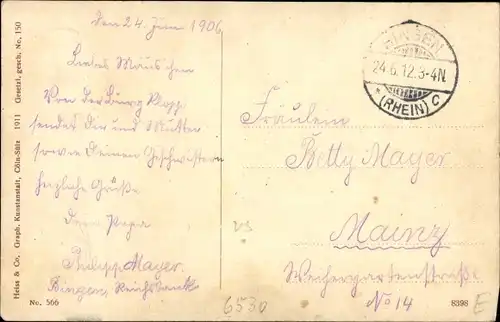 den 24. Juni 1906
Liebes Mäuschen
Von der Burg Klopp
sendet Dir und Mutter
sowie Deinen Geschwistern
herzliche Grüße
Dein Papa
Philipp Mayer
Bingen, Reichsbank
Fräulein
Betty Mayer
Mainz
Weihergartenstraße
No 14
BINGEN
24.6.12.3-4N.
* (RHEIN) C
Heiss & Co., Graph. Kunstanstalt, Cöln-Sülz 1911 Gesetzl. gesch. No. 150
No. 566
6530
8398
E